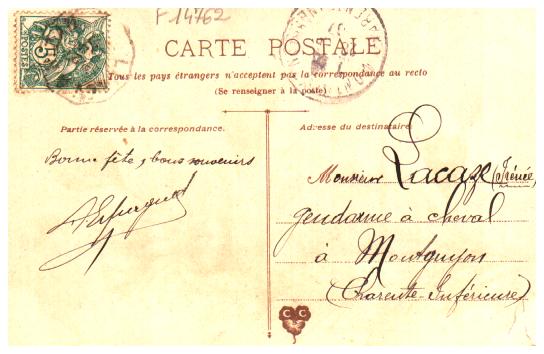 F 14762
5c
POSTES
CARTE POSTALE
Tous les pays étrangers n'acceptent pas la correspondance au recto
(Se renseigner à la poste)
Partie réservée à la correspondance.
Adresse du destinataire.
Bonne fête, bons souvenirs
Monsieur Lacaze (Irénée,
gendarme à cheval
à Montguyon
(Charente-Inférieure)
C C